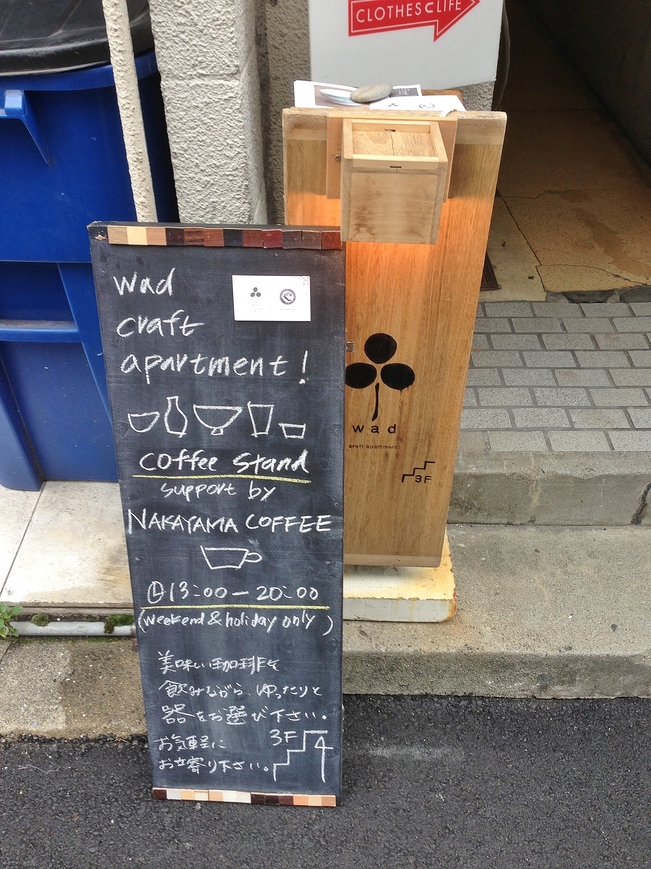 CLOTHES⊂LIFE
wad
craft
apartment!
coffee stand
support by
NAKAYAMA COFFEE
13:00-20:00
(weekend & holiday only)
美味しい珈琲を
飲みながら ゆったりと
器をお選び下さい。
お気軽に
お立寄り下さい。
3F
wad
craft apartment
3F